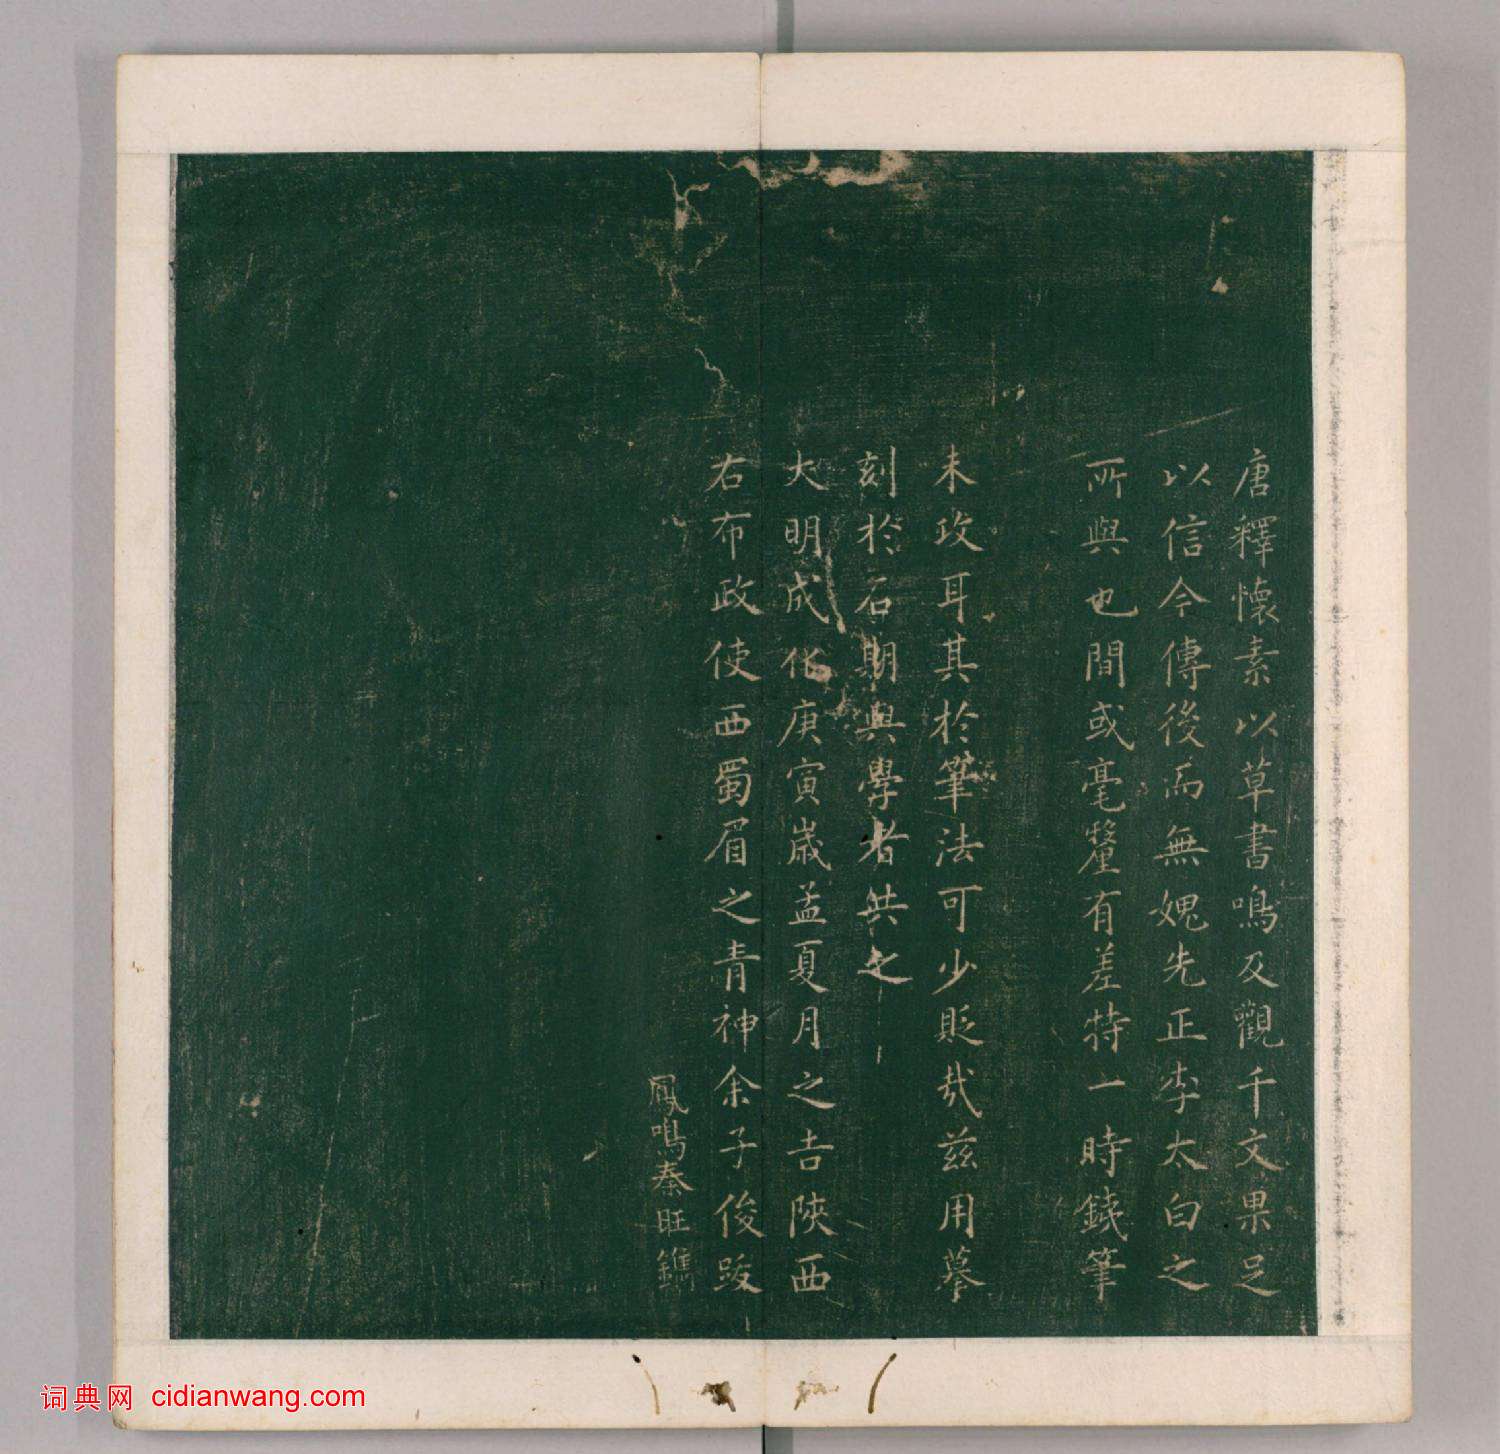 唐釋懷素以草書鳴及觀千文果足
以信今傳後而無媿先正李太白之
所與也間或毫釐有差特一時鋟筆
未攷耳其於筆法可少貶哉茲用摹
刻於石期與學者共之
大明成化庚寅歲孟夏月之吉陝西
右布政使西蜀眉之青神余子俊跋
鳳鳴秦旺鐫
词典网 cidianwang.com